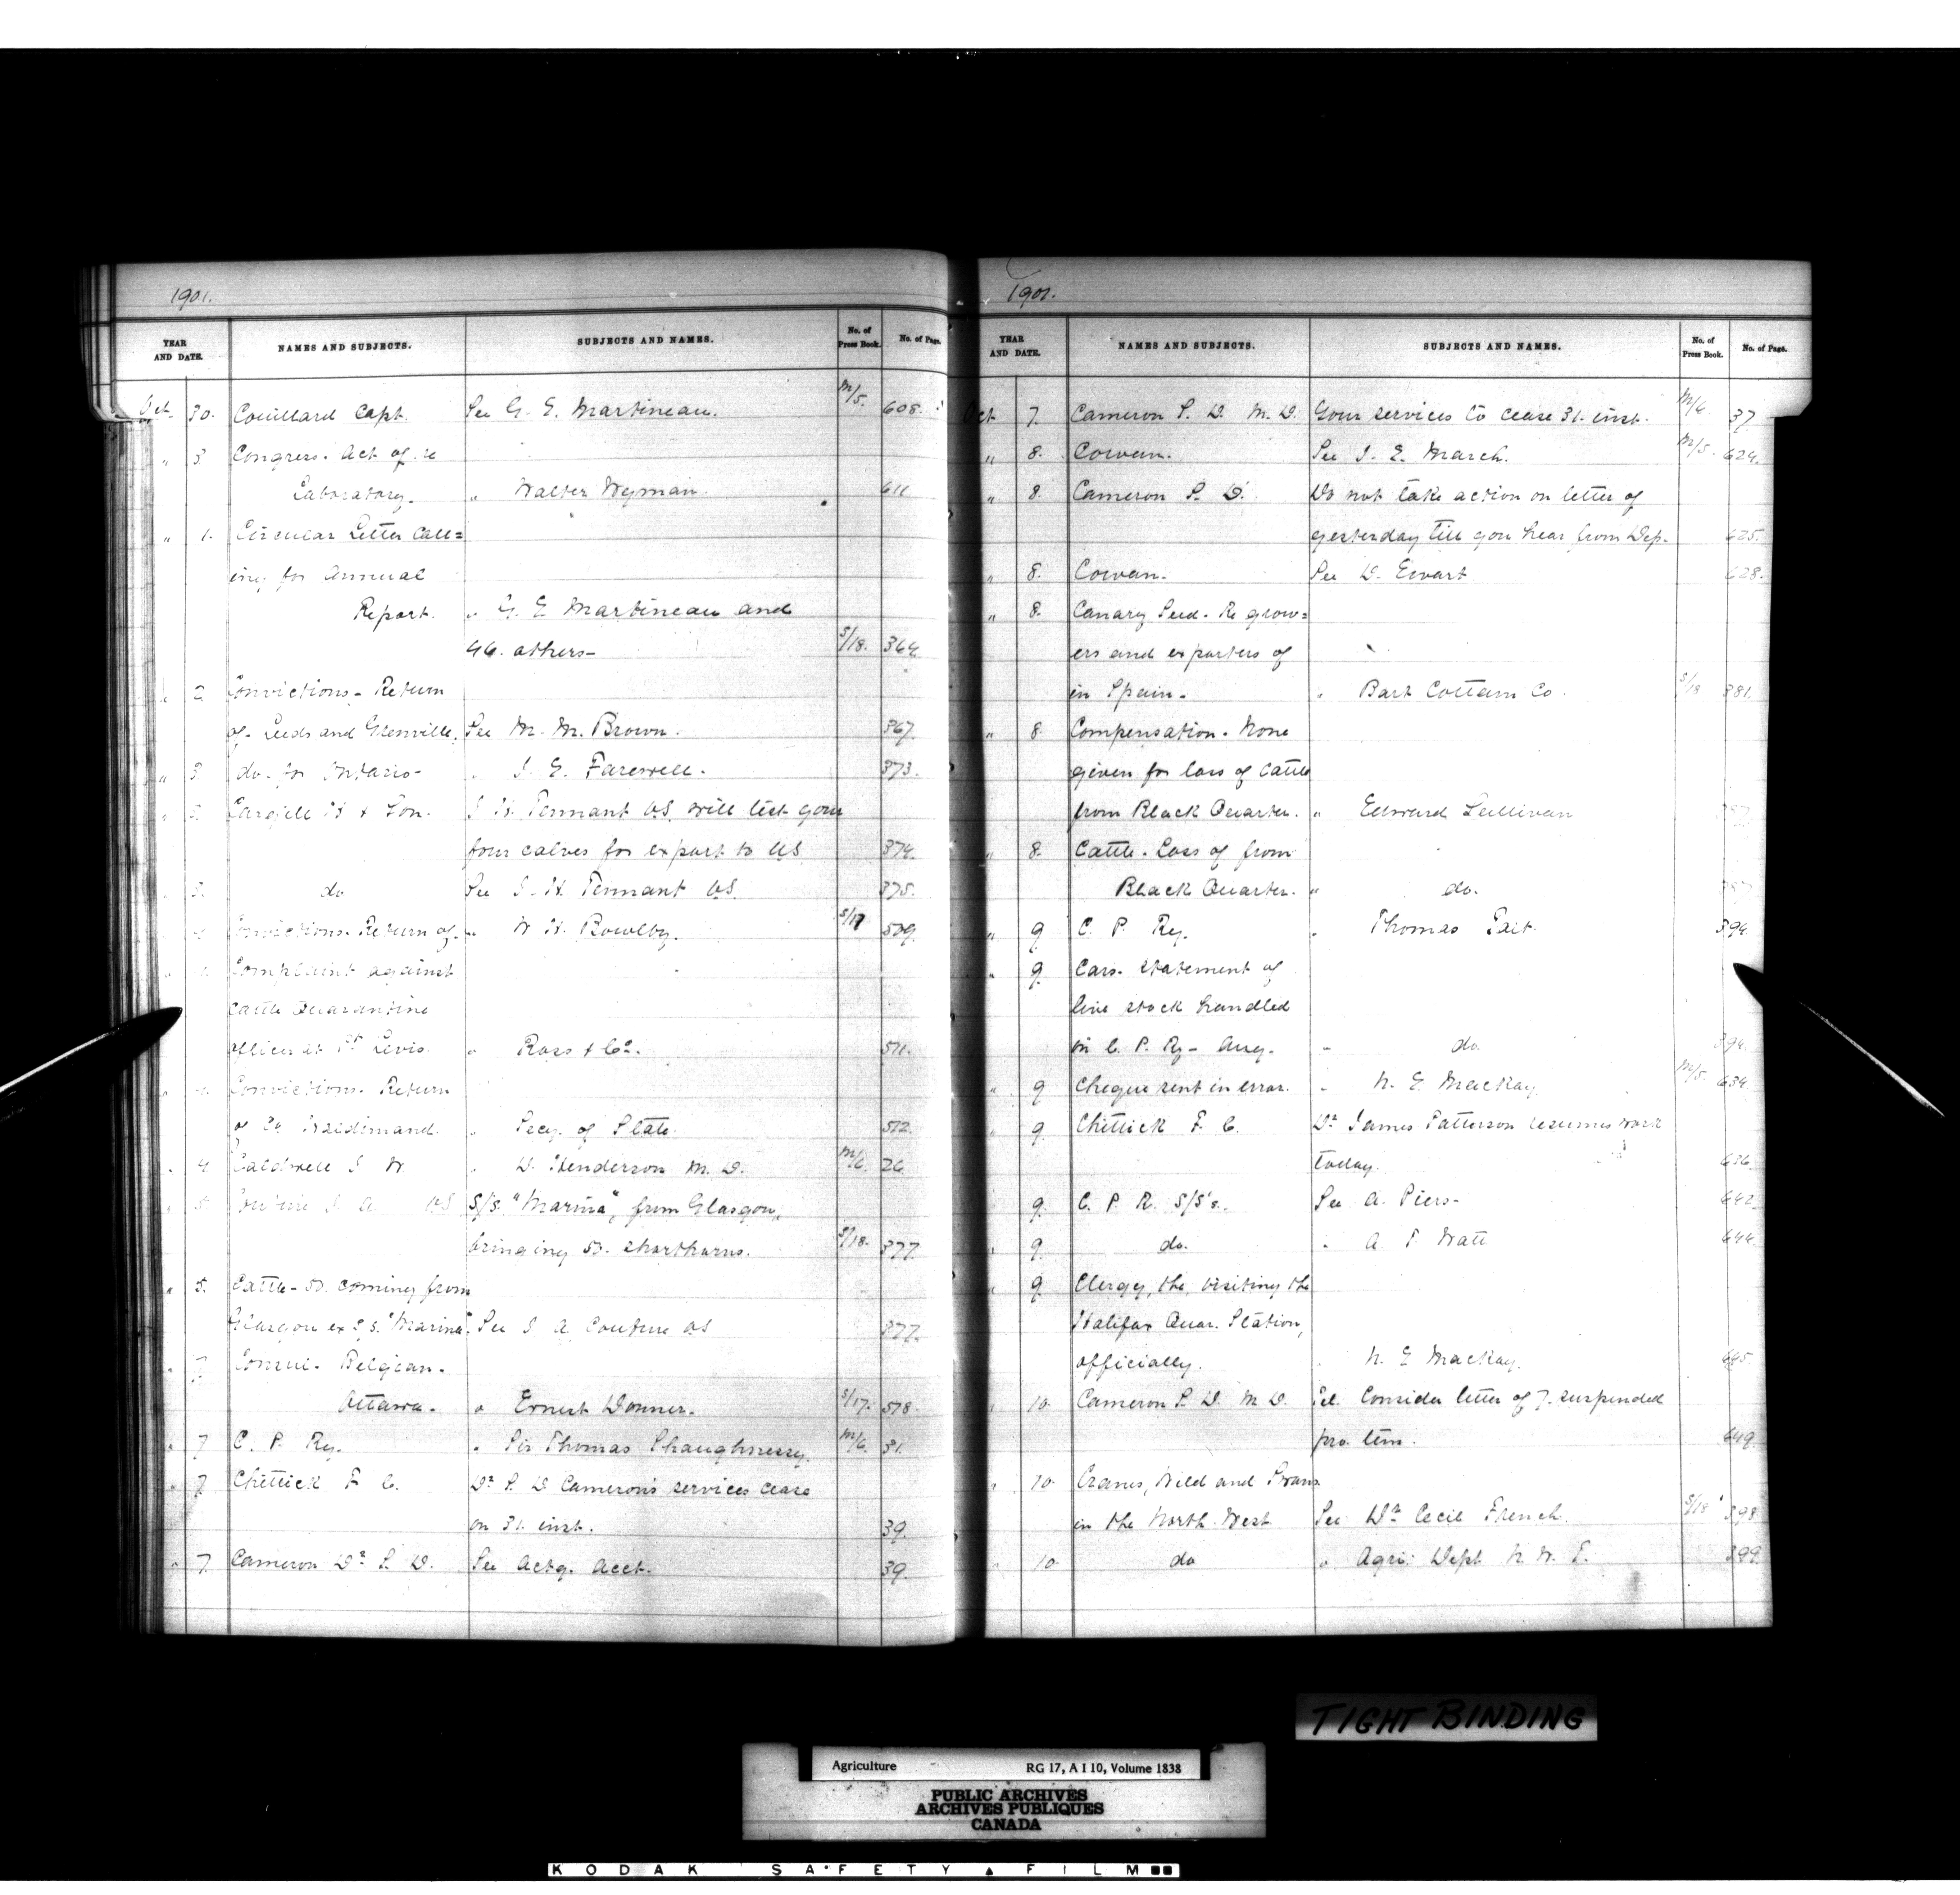 1901.
YEAR AND DATE. NAMES AND SUBJECTS. SUBJECTS AND NAMES. No. of Press Book. No. of Page.
Oct. 30. Couillard Capt. See G. E. Martineau. M/5. 608.
" 3. Congress. Act of re
Laboratory. " Walter Wyman. 611
" 1. Circular Letter Call=
ing for Annual
Report. " G. E Martineau and
46. others- S/18. 364
" 2 Convictions - Return
of Leeds and Grenville. See M. M. Brown. 367.
" 3 do. for Ontario- " J. E. Farewell. 373.
" 3. Cargill H & Son. J. H. Tennant VS. will test your
four calves for export to US 374.
3. do See J. H. Tennant VS. 375.
Convictions. Return of. " W. H. Bowlby. S/17 509.
Complaint against
Cattle Quarantine
officer at Pt Levis. " Ross & Co. 511.
Convictions. Return
o Co Haldimand. " Secy. of State. 512.
" 4 Caldwell J W " D. Henderson M. D. M/6. 26
5. Couture J. A. VS S/S. "Marina", from Glasgow,
bringing 50. shorthorns. S/18. 377.
" 5. Cattle - 50. coming from
Glasgow ex S.S. "Marina". See J A Couture VS 377.
" 7 Consul - Belgian -
Ottawa. " Ernest Donner. S/17. 518.
" 7 C. P. Ry. " Sir Thomas Shaughnessy. M/6. 31.
" 7. Chittick F. C. Dr P. D Cameron's services cease
on 31. inst. 39.
" 7. Cameron Dr P. D. See Actg. Acct. 39.
1901.
YEAR AND DATE. NAMES AND SUBJECTS. SUBJECTS AND NAMES. No. of Press Book. No. of Page.
Oct 7. Cameron P. D. M. D. Your services to cease 31. inst. M/6. 37.
" 8. Cowan. See J. E. March. M/5. 624.
" 8. Cameron P. D. Do not take action on letter of
yesterday till you hear from Dep. 625.
" 8. Cowan. See D. Ewart 628.
" 8. Canary Seed. Re grow=
ers and exporters of
in Spain. " Bart Cottam Co. S/18 381.
" 8. Compensation. None
given for loss of Cattle
from Black Quarter. " Edward Sullivan 387.
" 8. Cattle. Loss of from
Black Quarter. " do. 387
" 9 C. P. Ry. " Thomas Tait. 394.
" 9. Cars. Statement of
live stock handled
in C. P. Ry - Aug. " do. 394.
" 9 Cheque sent in error. " N. E. MacKay. M/5. 634.
9 Chittick F. C. Dr James Patterson resumes work
today. 636.
9. C. P. R. S/S's. See A. Piers- 642.
" 9. do. " A. T. Watt 644.
" 9. Clergy, the, visiting the
Halifax Quar. Station,
officially. " N. E MacKay. 645.
" 10. Cameron P. D. M. D. Tel. Consider letter of 7. suspended
pro. tem. 649.
" 10. Cranes, Wild and Swans
in the North West See Dr Cecil French. S/18 398.
" 10. do " Agri. Dept N. W. T. 399.
TIGHT BINDING
Agriculture RG 17, A I 10, Volume 1838
PUBLIC ARCHIVES
ARCHIVES PUBLIQUES
CANADA
KODAK SAFETY FILM